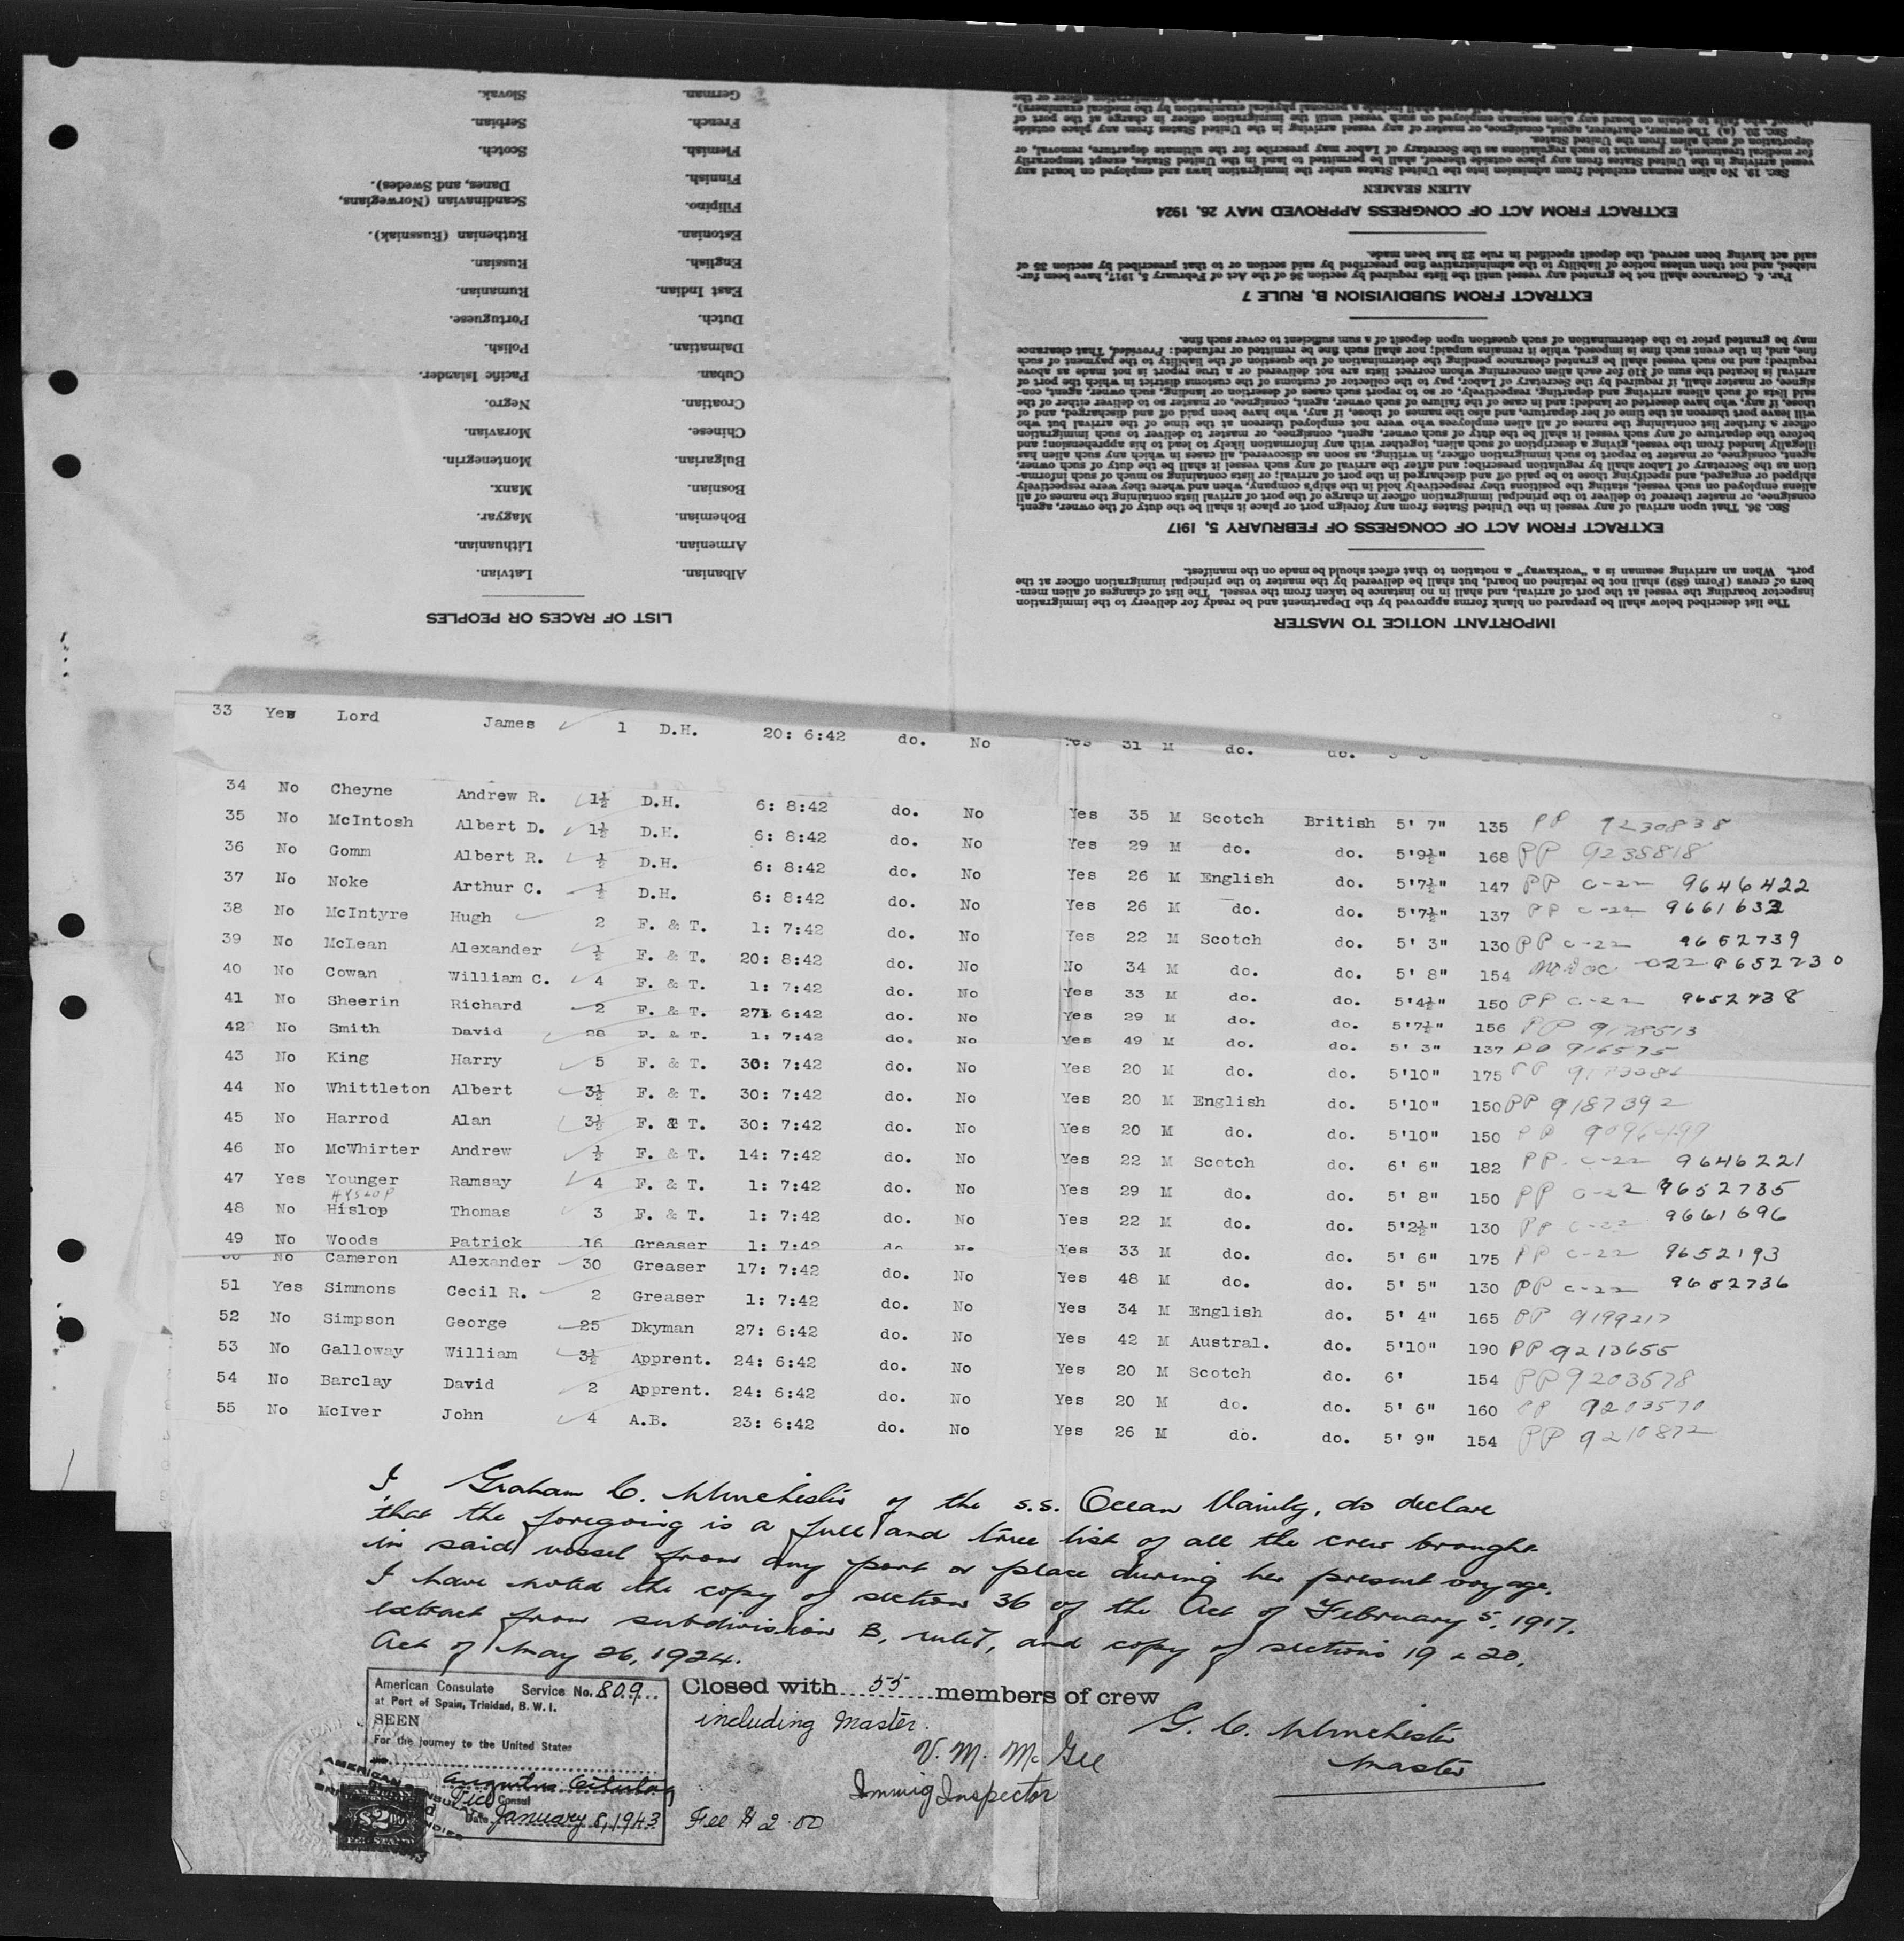 IMPORTANT NOTICE TO MASTER
The list described below shall be prepared on blank forms approved by the Department and be ready for delivery to the immigration
inspector boarding the vessel at the port of arrival, and shall in no instance be taken from the vessel. The list of changes of alien mem-
bers of crews (Form 689) shall not be retained on board, but shall be delivered by the master to the principal immigration officer at the
port. When an arriving seaman is a "workaway" a notation to that effect should be made on the manifest.
EXTRACT FROM ACT OF CONGRESS OF FEBRUARY 5, 1917
SEC. 36. That upon arrival of any vessel in the United States from any foreign port or place it shall be the duty of the owner, agent,
consignee, or master thereof to deliver to the principal immigration officer in charge of the port of arrival lists containing the names of all
aliens employed on such vessel, stating the positions they respectively hold in the ship's company, when and where they were respectively
shipped or engaged, and specifying those to be paid off and discharged in the port of arrival; or lists containing so much of such informa-
tion as the Secretary of Labor shall by regulation prescribe; and after the arrival of any such vessel it shall be the duty of such owner,
agent, consignee, or master to report to such immigration officer, in writing, as soon as discovered, all cases in which any such alien has
illegally landed from the vessel, giving a description of such alien, together with any information likely to lead to his apprehension; and
before the departure of any such vessel it shall be the duty of such owner, agent, consignee, or master to deliver to such immigration
officer a further list containing the names of all alien employees who were not employed thereon at the time of the arrival but who
will leave port thereon at the time of her departure, and also the names of those, if any, who have been paid off and discharged, and of
those, if any, who have deserted or landed; and in case of the failure of such owner, agent, consignee, or master so to deliver either of the
said lists of such aliens arriving and departing, respectively, or so to report such cases of desertion or landing, such owner, agent, con-
signee, or master shall, if required by the Secretary of Labor, pay to the collector of customs of the customs district in which the port of
arrival is located the sum of $10 for each alien concerning whom correct lists are not delivered or a true report is not made as above
required; and no such vessel shall be granted clearance pending the determination of the question of the liability to the payment of such
fine, and, in the event such fine is imposed, while it remains unpaid; nor shall such fine be remitted or refunded: Provided, That clearance
may be granted prior to the determination of such question upon deposit of a sum sufficient to cover such fine.
EXTRACT FROM SUBDIVISION B, RULE 7
Par. 6. Clearance shall not be granted any vessel until the lists required by section 36 of the Act of February 5, 1917, have been fur-
nished, and not then unless notice of liability to the administrative fine prescribed by said section or to that prescribed by section 35 of
said act having been served, the deposit specified in rule 23 has been made.
EXTRACT FROM ACT OF CONGRESS APPROVED MAY 26, 1924
ALIEN SEAMEN
SEC. 19. No alien seaman excluded from admission into the United States under the immigration laws and employed on board any
vessel arriving in the United States from any place outside thereof, shall be permitted to land in the United States, except temporarily
for medical treatment, or pursuant to such regulations as the Secretary of Labor may prescribe for the ultimate departure, removal, or
deportation of such alien from the United States.
SEC. 20. (a) The owner, charterer, agent, consignee, or master of any vessel arriving in the United States from any place outside
thereof who fails to detain on board any alien seaman employed on such vessel until the immigration officer in charge at the port of
LIST OF RACES OR PEOPLES
Albanian. Latvian.
Armenian. Lithuanian.
Bohemian. Magyar.
Bosnian. Manx.
Bulgarian. Montenegrin.
Chinese. Moravian.
Croatian. Negro.
Cuban. Pacific Islander.
Dalmatian. Polish.
Dutch. Portuguese.
East Indian. Rumanian.
English. Russian.
Estonian. Ruthenian (Russniak).
Filipino. Scandinavian (Norwegians,
Finnish. Danes, and Swedes).
Flemish. Scotch.
French. Serbian.
German. Slovak.
33 Yes Lord James 1 D.H. 20: 6:42 do. No Yes 31 M do. do.
34 No Cheyne Andrew R. 1½ D.H. 6: 8:42 do. No Yes 35 M Scotch British 5' 7" 135 PP 9230838
35 No McIntosh Albert D. 1½ D.H. 6: 8:42 do. No Yes 29 M do. do. 5'9½" 168 PP 9238818
36 No Gomm Albert R. ½ D.H. 6: 8:42 do. No Yes 26 M English do. 5'7½" 147 PP C-22 9646422
37 No Noke Arthur C. ½ D.H. 6: 8:42 do. No Yes 26 M do. do. 5'7½" 137 PP C-22 9661632
38 No McIntyre Hugh 2 F. & T. 1: 7:42 do. No Yes 22 M Scotch do. 5' 3" 130 PP C-22 9652739
39 No McLean Alexander ½ F. & T. 20: 8:42 do. No No 34 M do. do. 5' 8" 154 No Doc C22 9652730
40 No Cowan William C. 4 F. & T. 1: 7:42 do. No Yes 33 M do. do. 5'4½" 150 PP C-22 9652738
41 No Sheerin Richard 2 F. & T. 27: 6:42 do. No Yes 29 M do. do. 5'7½" 156 PP 9178513
42 No Smith David 28 F. & T. 1: 7:42 do. No Yes 49 M do. do. 5' 3" 137 PP 916575
43 No King Harry 5 F. & T. 30: 7:42 do. No Yes 20 M do. do. 5'10" 175 PP
44 No Whittleton Albert 3½ F. & T. 30: 7:42 do. No Yes 20 M English do. 5'10" 150 PP 9187392
45 No Harrod Alan 3½ F. & T. 30: 7:42 do. No Yes 20 M do. do. 5'10" 150 PP
46 No McWhirter Andrew ½ F. & T. 14: 7:42 do. No Yes 22 M Scotch do. 6' 6" 182 PP C-22 9646221
47 Yes Younger Ramsay 4 F. & T. 1: 7:42 do. No Yes 29 M do. do. 5' 8" 150 PP C-22 9652735
HYSLOP
48 No Hislop Thomas 3 F. & T. 1: 7:42 do. No Yes 22 M do. do. 5'2½" 130 PP C-22 9661696
49 No Woods Patrick 16 Greaser 1: 7:42 do. No Yes 33 M do. do. 5' 6" 175 PP C-22 9652193
50 No Cameron Alexander 30 Greaser 17: 7:42 do. No Yes 48 M do. do. 5' 5" 130 PP C-22 9652736
51 Yes Simmons Cecil R. 2 Greaser 1: 7:42 do. No Yes 34 M English do. 5' 4" 165 PP 9199217
52 No Simpson George 25 Dkyman 27: 6:42 do. No Yes 42 M Austral. do. 5'10" 190 PP 9213655
53 No Galloway William 3½ Apprent. 24: 6:42 do. No Yes 20 M Scotch do. 6' 154 PP 9203578
54 No Barclay David 2 Apprent. 24: 6:42 do. No Yes 20 M do. do. 5' 6" 160 PP 9203570
55 No McIver John 4 A.B. 23: 6:42 do. No Yes 26 M do. do. 5' 9" 154 PP 9210872
I Graham C. Winchester of the s.s. Ocean Vanity, do declare
that the foregoing is a full and true list of all the crew brought
in said vessel from any port or place during her present voyage.
I have noted the copy of section 36 of the Act of February 5, 1917,
extract from subdivision B, rule 7, and copy of sections 19 & 20,
Act of May 26, 1924.
American Consulate Service No. 809
at Port of Spain, Trinidad, B.W.I.
SEEN
For the journey to the United States
Vice Consul
Date January 8, 1943
Closed with 55 members of crew
including Master.
V. M. McGee
Immig Inspector
Fee $ 2.00
G. C. Winchester
Master